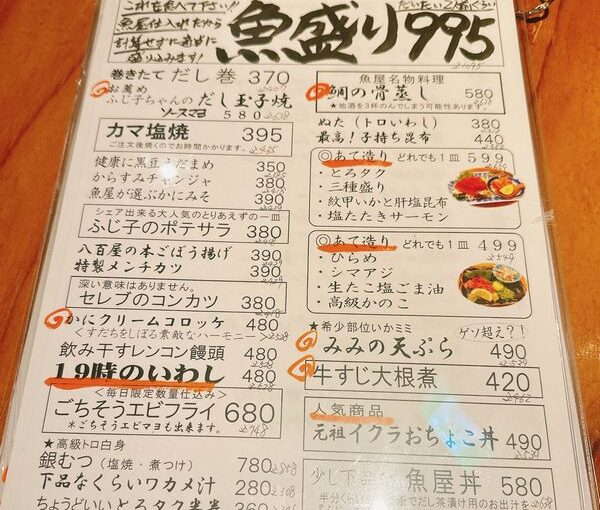 これを食べて下さい!
魚屋仕入れだから
計算せずに適当に
盛り込みます!
だいたい2名くらい
魚盛り 995
巻きたて だし巻 370
お薦め
ふじ子ちゃんの だし玉子焼
ソースマヨ 580
カマ塩焼 395
ご注文後焼くのでお時間かかります。
健康に黒豆えだまめ 350
からすみチャンジャ 380
魚屋が選ぶかにみそ 390
シェア出来る大人気のとりあえずの一皿
ふじ子のポテサラ 380
八百屋の本ごぼう揚げ 390
特製メンチカツ 390
深い意味はありません。
セレブのコンカツ 380
かにクリームコロッケ 480
<すだちをしぼる素敵なハーモニー>
飲み干すレンコン饅頭 480
19時のいわし 480
<毎日限定数量仕込み>
ごちそうエビフライ 680
*ごちそうエビマヨも出来ます。
★高級トロ白身
銀むつ(塩焼・煮つけ) 780
下品なくらいワカメ汁 280
ちょうどいいとろタク巻巻
魚屋名物料理
鯛の骨蒸し 580
★地酒を3杯のんでしまう可能性あります。
ぬた(トロいわし) 440
最高!子持ち昆布 380
◎あて造り どれでも1皿 599
・とろタク
・三種盛り
・紋甲イカと肝塩昆布
・塩たたきサーモン
◎あて造り どれでも1皿 499
・ひらめ
・シマアジ
・生たこ塩ごま油
・高級かのこ
★希少部位いかミミ ゲソ超え?!
みみの天ぷら 490
牛すじ大根煮 420
人気商品
元祖イクラおちょこ丼 490
少し下品な 魚屋丼 580